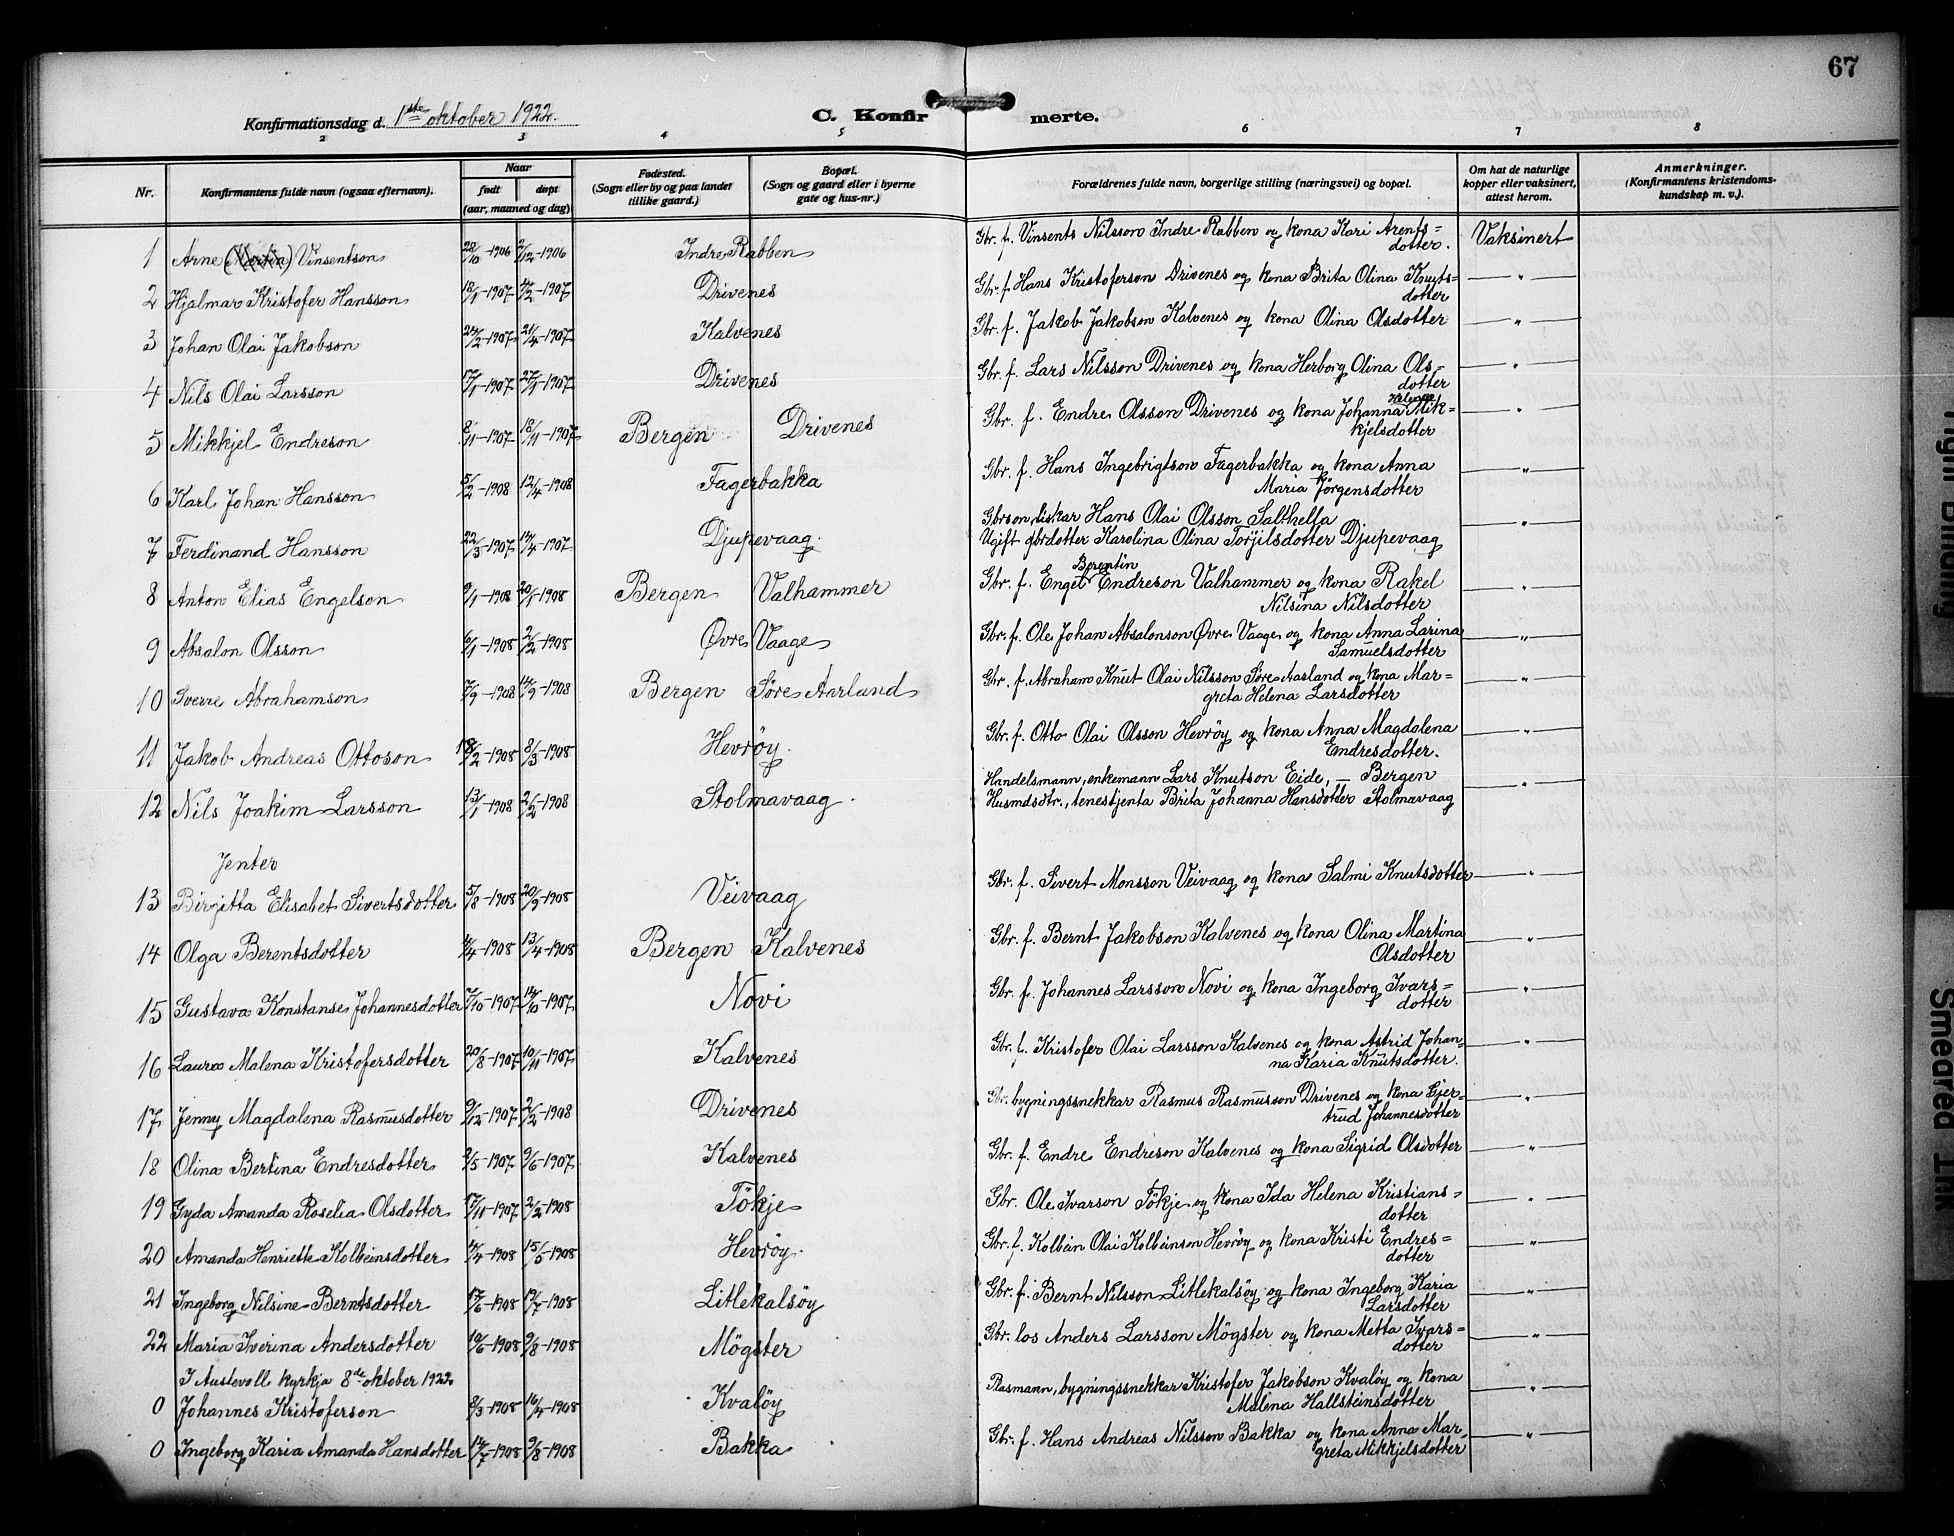 67
Konfirmationsdag d. 1ste oktober 1922. C. Konfirmerte.
2 3 4 5 6 7 8
Nr. Konfirmantens fulde navn (ogsaa efternavn). Naar født døpt (aar, maaned og dag) Fødested. (Sogn eller by og paa landet tillike gaard.) Bopæl. (Sogn og gaard eller i byerne gate og hus-nr.) Forældrenes fulde navn, borgerlige stilling (næringsvei) og bopæl. Om hat de naturlige kopper eller vaksinert, attest herom. Anmerkninger. (Konfirmantens kristendoms-kundskap m. v.).
1 Arne (Martin) Vinsentson 28/10-1906 2/12-1906 Indre Rabben Gbr. f. Vinsents Nilsson Indre Rabben og kona Kari Arents=
dotter. Vaksinert
2 Hjalmar Kristofer Hansson 18/1-1907 24/2-1907 Drivenes Gbr. f. Hans Kristoferson Drivenes og kona Brita Olina Knuts=
dotter — " —
3 Johan Olai Jakobson 24/2-1907 21/4-1907 Kalvenes Gbr. f. Jakob Jakobson Kalvenes og kona Olina Olsdotter — " —
4 Nils Olai Larsson 17/1-1907 27/1-1907 Drivenes Gbr. f. Lars Nilsson Drivenes og kona Herborg Olina Ols=
dotter — " —
5 Mikkjel Endreson 8/11-1907 18/11-1907 Bergen Drivenes Gbr. f. Endre Olsson Drivenes og kona Johanna Helena Mik=
kjelsdotter — " —
6 Karl Johan Hansson 5/2-1908 12/4-1908 Fagerbakka Gbr. f. Hans Ingebrigtson Fagerbakka og kona Anna
Maria Jørgensdotter — " —
7 Ferdinand Hansson 22/3-1907 14/4-1907 Djupevaag. Gbrson, fiskar Hans Olai Olsson Salthella
Ugift gbrdotter Karolina Olina Torjilsdotter Djupevaag — " —
8 Anton Elias Engelson 9/1-1908 20/1-1908 Bergen Valhammer Gbr. f. Engel Berentin Endreson Valhammer og kona Rakel
Nilsina Nilsdotter — " —
9 Absalon Olsson 6/1-1908 2/2-1908 Øvre Vaage Gbr. f. Ole Johan Absalonson Øvre Vaage og kona Anna Larina
Samuelsdotter — " —
10 Sverre Abrahamson 7/9-1908 14/9-1908 Bergen Søre Aarland Gbr. f. Abraham Knut Olai Nilsson Søre Aasland og kona Mar=
greta Helena Larsdotter — " —
11 Jakob Andreas Ottoson 18/2-1908 8/3-1908 Hevrøy. Gbr. f. Otto Olai Olsson Hevrøy og kona Anna Magdalena
Endresdotter. — " —
12 Nils Joakim Larsson 13/1-1908 2/2-1908 Stolmavaag. Handelsmann, enkemann Lars Knutson Eide, — Bergen
Husmdsdtr., tenestjenta Brita Johanna Hansdotter Stolmavaag — " —
Jenter
13 Birgitta Elisabet Sivertsdotter 5/8-1908 20/9-1908 Veivaag Gbr. f. Sivert Monsson Veivaag og kona Salmi Knutsdotter — " —
14 Olga Berentsdotter 4/4-1908 13/4-1908 Bergen Kalvenes Gbr. f. Bernt Jakobson Kalvenes og kona Olina Martina
Olsdotter — " —
15 Gustava Konstanse Johannesdotter 7/10-1907 14/10-1907 Novi Gbr. f. Johannes Larsson Novi og kona Ingeborg Ivars=
dotter — " —
16 Laura Malena Kristofersdotter 20/8-1907 10/11-1907 Kalvenes Gbr. f. Kristofer Olai Larsson Kalvenes og kona Astrid Johan=
na Karia Knutsdotter. — " —
17 Jenny Magdalena Rasmusdotter 9/12-1907 2/2-1908 Drivenes Gbr. bygningssnekkar Rasmus Rasmusson Drivenes og kona Gjer=
trud Johannesdotter — " —
18 Olina Bertina Endresdotter 2/5-1907 9/6-1907 Kalvenes Gbr. f. Endre Endreson Kalvenes og kona Sigrid Olsdotter — " —
19 Gyda Amanda Roselia Olsdotter 17/11-1907 2/2-1908 Tökje Gbr. Ole Ivarson Tökje og kona Ida Helena Kristians=
dotter — " —
20 Amanda Henriette Kolbeinsdotter 4/4-1908 15/5-1908 Hevrøy. Gbr. f. Kolbein Olai Kolbeinson Hevrøy og kona Kristi Endres=
dotter — " —
21 Ingeborg Nilsine Berntsdotter 17/6-1908 19/7-1908 Litlekalsøy Gbr. f. Bernt Nilsson Litlekalsøy og kona Ingeborg Karia
Larsdotter — " —
22 Maria Iverina Andersdotter 10/6-1908 9/8-1908 Mögster Gbr. los Anders Larsson Mögster og kona Metta Ivars=
dotter — " —
I Austevoll kyrkja 8de oktober 1922
0 Johannes Kristoferson 8/3-1908 16/4-1908 Kvaløy Plasmann, bygningssnekkar Kristofer Jakobson Kvaløy og kona
Malena Hallsteinsdotter — " —
0 Ingeborg Karia Amanda Hansdotter 14/7-1908 9/8-1908 Bakka Gbr. f. Hans Andreas Nilsson Bakka og kona Anna Mar=
greta Mikkjelsdotter — " —
Tight Binding
Smeared Ink